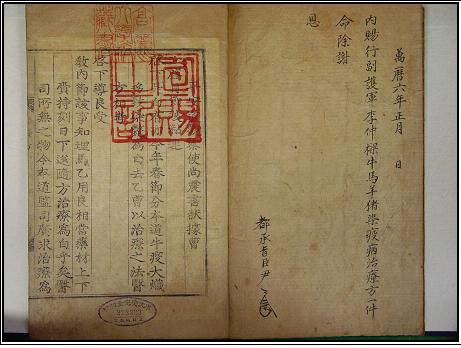 萬曆六年正月 日
內賜行副護軍李仲樑牛馬羊猪染疫病治療方一件
命除謝
恩
都承旨臣尹
使尚震書狀據曹
今年春節分本道牛疫大熾
爲白去乙曾以治療之法醫
啓下導良受
敎內節該事知理馬乙用良相當藥材上下
賫持刻日下送隨方治療爲白乎矣醫
司所無之物令本道監司廣求治療爲